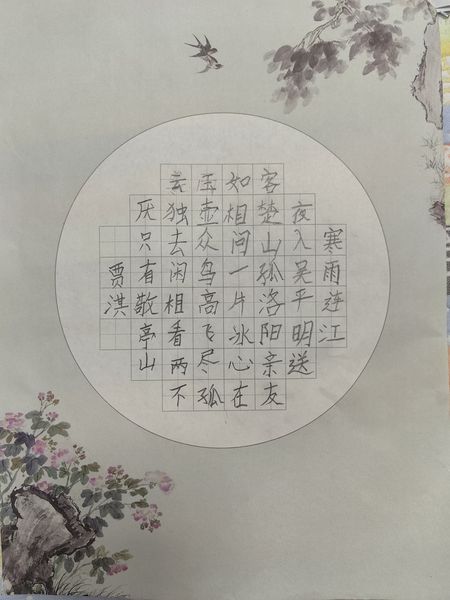 寒雨连江
夜入吴平明送
客楚山孤洛阳亲友
如相问一片冰心在
玉壶众鸟高飞尽孤
云独去闲相看两不
厌只有敬亭山
贾洪